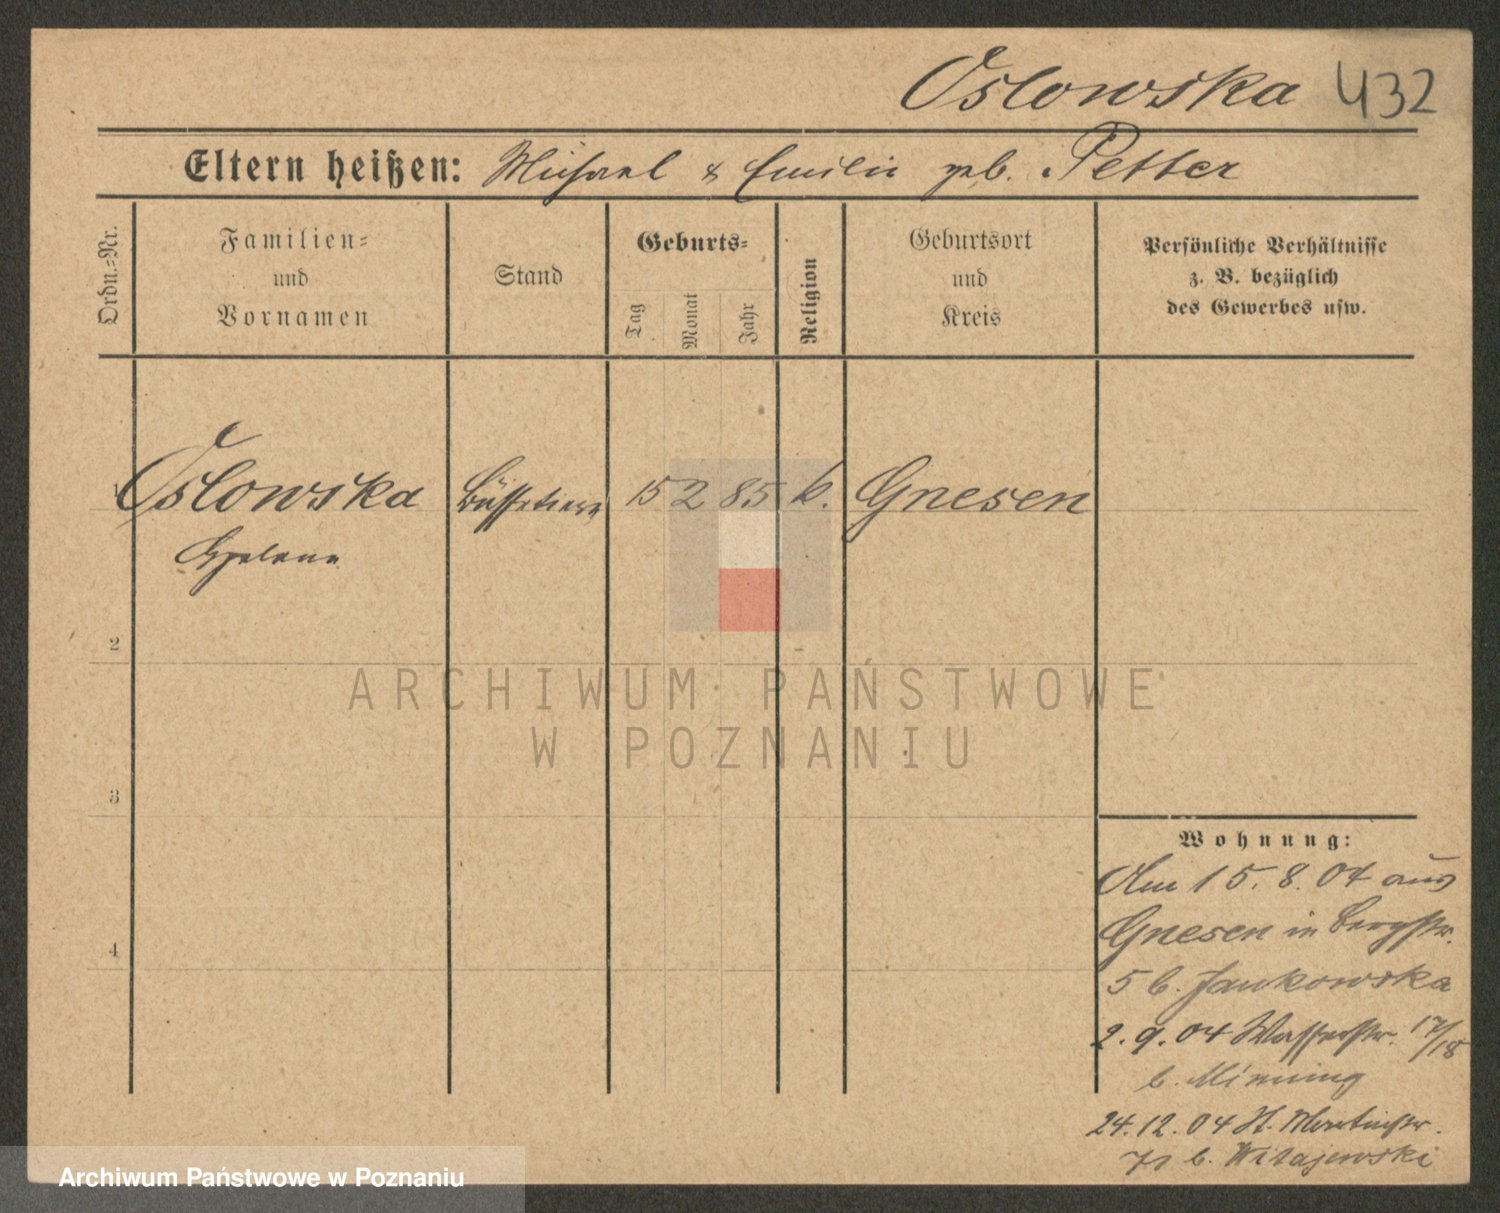 Oslowska 432
Eltern heißen: Michael & Emilie geb. Petter
Ordn.=Nr.
Familien=
und
Vornamen
Stand
Geburts=
Tag
Monat
Jahr
Religion
Geburtsort
und
Kreis
Persönliche Verhältnisse
z. B. bezüglich
des Gewerbes usw.
Oslowska Büffetiere 15 2 85 k. Gnesen
Helene
2
3
4
Wohnung:
Am 15. 8. 04 aus
Gnesen in Bergstr.
5 b. Jankowska
2. 9. 04 Wasserstr. 17/18
b. Minning
24. 12. 04 St. Martinstr.
b. Witajewski
ARCHIWUM PAŃSTWOWE
W POZNANIU
Archiwum Państwowe w Poznaniu